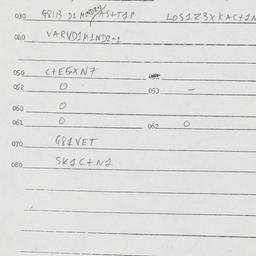 030 G8113 D1 M AS+TAP LOS1Z3XKAC+1N
060 VARVD1M1ND2-1
050 C+E5XN7
052 0 053 -
060 0
061 0 062 0
070 G81VET
080 SK1C+N1